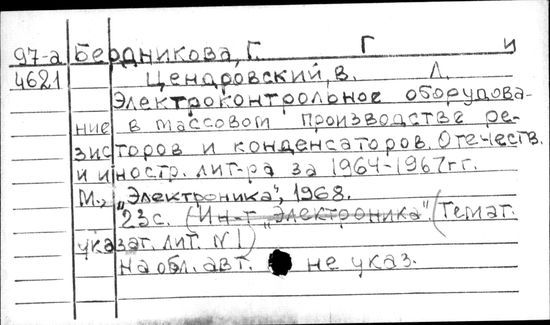 97-а Бердникова, Г. Г и
4621 Цендровский, В. Л.
Электроконтрольное оборудова-
ние в массовом производстве ре-
зисторов и конденсаторов. Отечеств.
и иностр. лит-ра за 1964-1967 гг.
М., "Электроника", 1968.
23 с. (Ин-т "Электроника" (Темат.
указат. лит. №1)
на обл. авт. не указ.